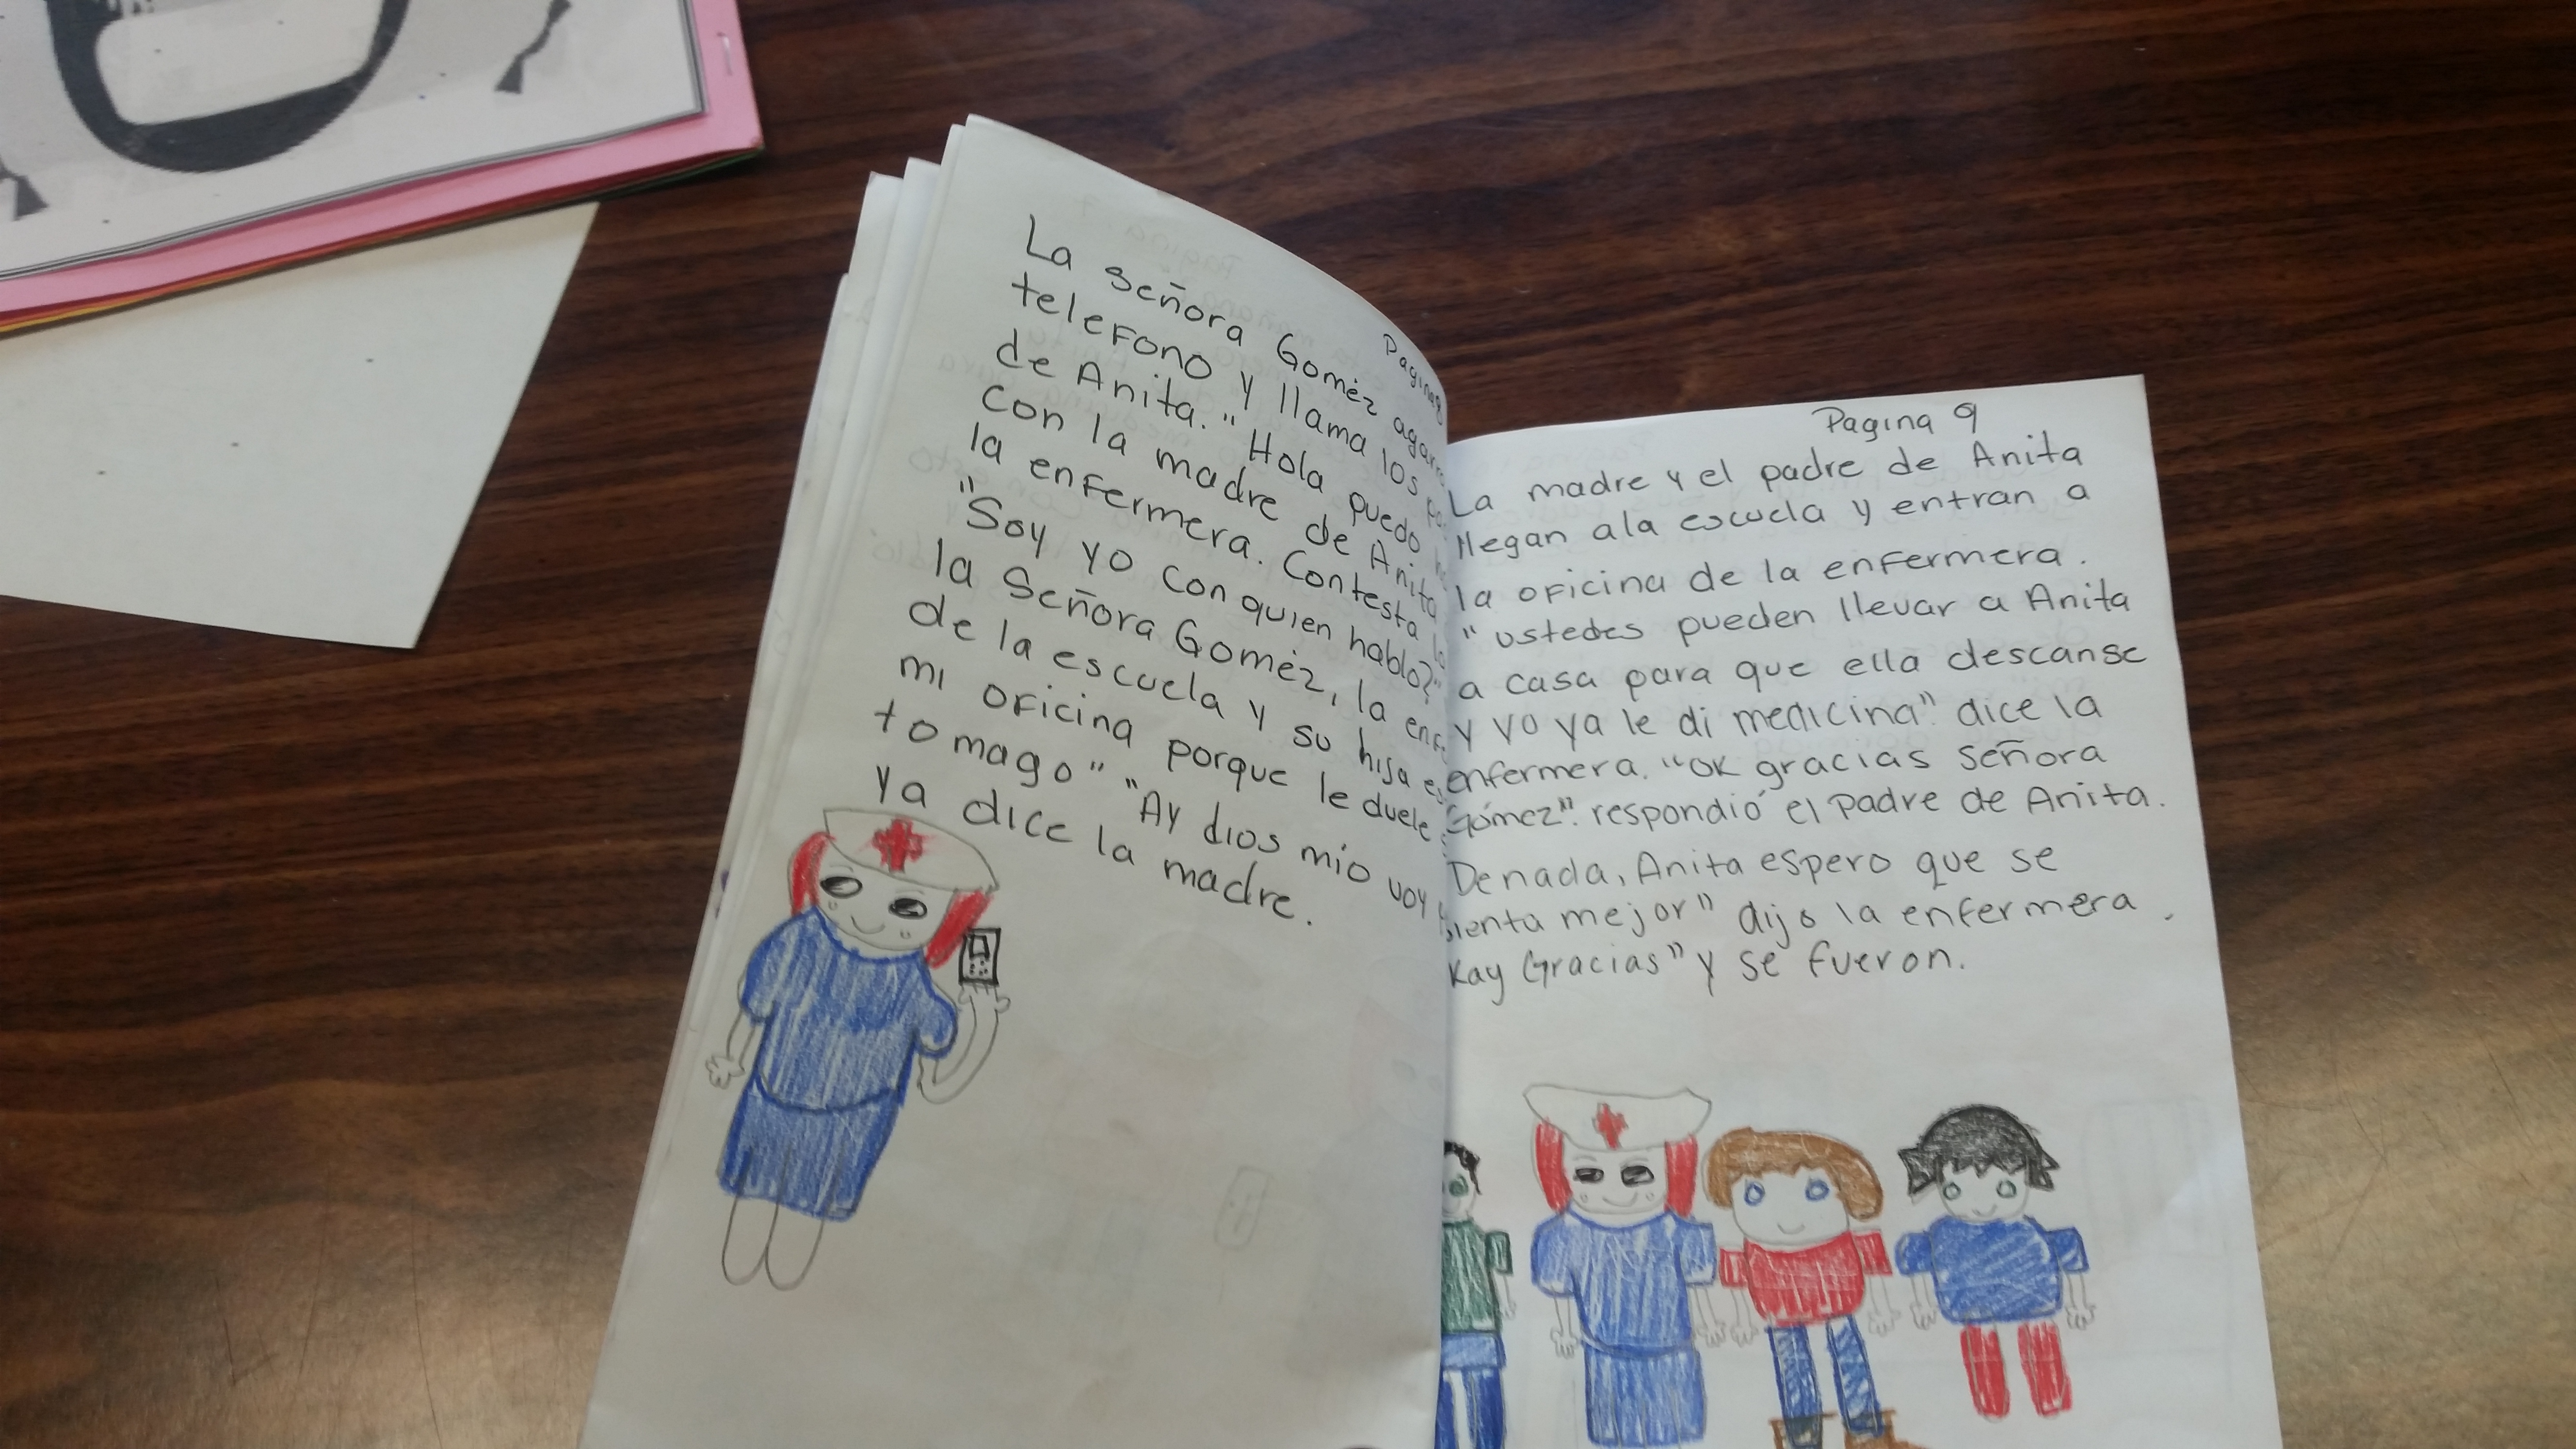 Pagina 8
La señora Goméz agarra
telefono y llama los
de Anita. "Hola puedo
con la madre de Anita
la enfermera. Contesta
"Soy yo con quien hablo?"
la Señora Goméz, la
de la escuela y su hija
mi oficina porque le duele
tomago" "Ay dios mío voy
ya dice la madre.
Pagina 9
La madre y el padre de Anita
llegan ala escuela y entran a
la oficina de la enfermera.
"ustedes pueden llevar a Anita
a casa para que ella descanse
y yo ya le di medicina". dice la
enfermera. "OK gracias señora
Gómez". respondió el padre de Anita.
Denada, Anita espero que se
sienta mejor" dijo la enfermera.
Kay Gracias" y se fueron.